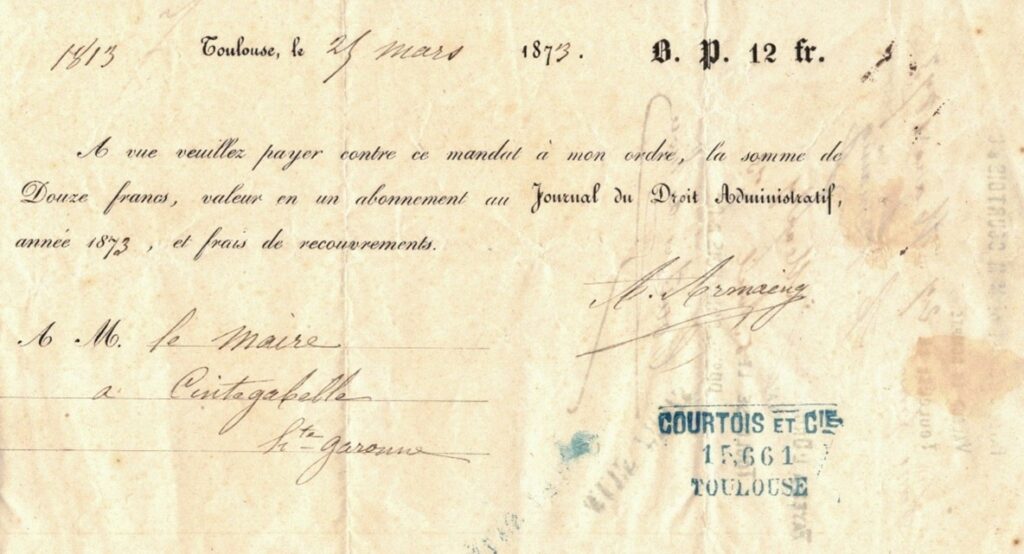 1813 Toulouse, le 25 mars 1873. B. P. 12 fr.
A vue veuillez payer contre ce mandat à mon ordre, la somme de
Douze francs, valeur en un abonnement au Journal du Droit Administratif,
année 1873, et frais de recouvrements.
A. Armaing
A M. le Maire
a Cintegabelle
hte garonne
COURTOIS ET CIE
15,661
TOULOUSE